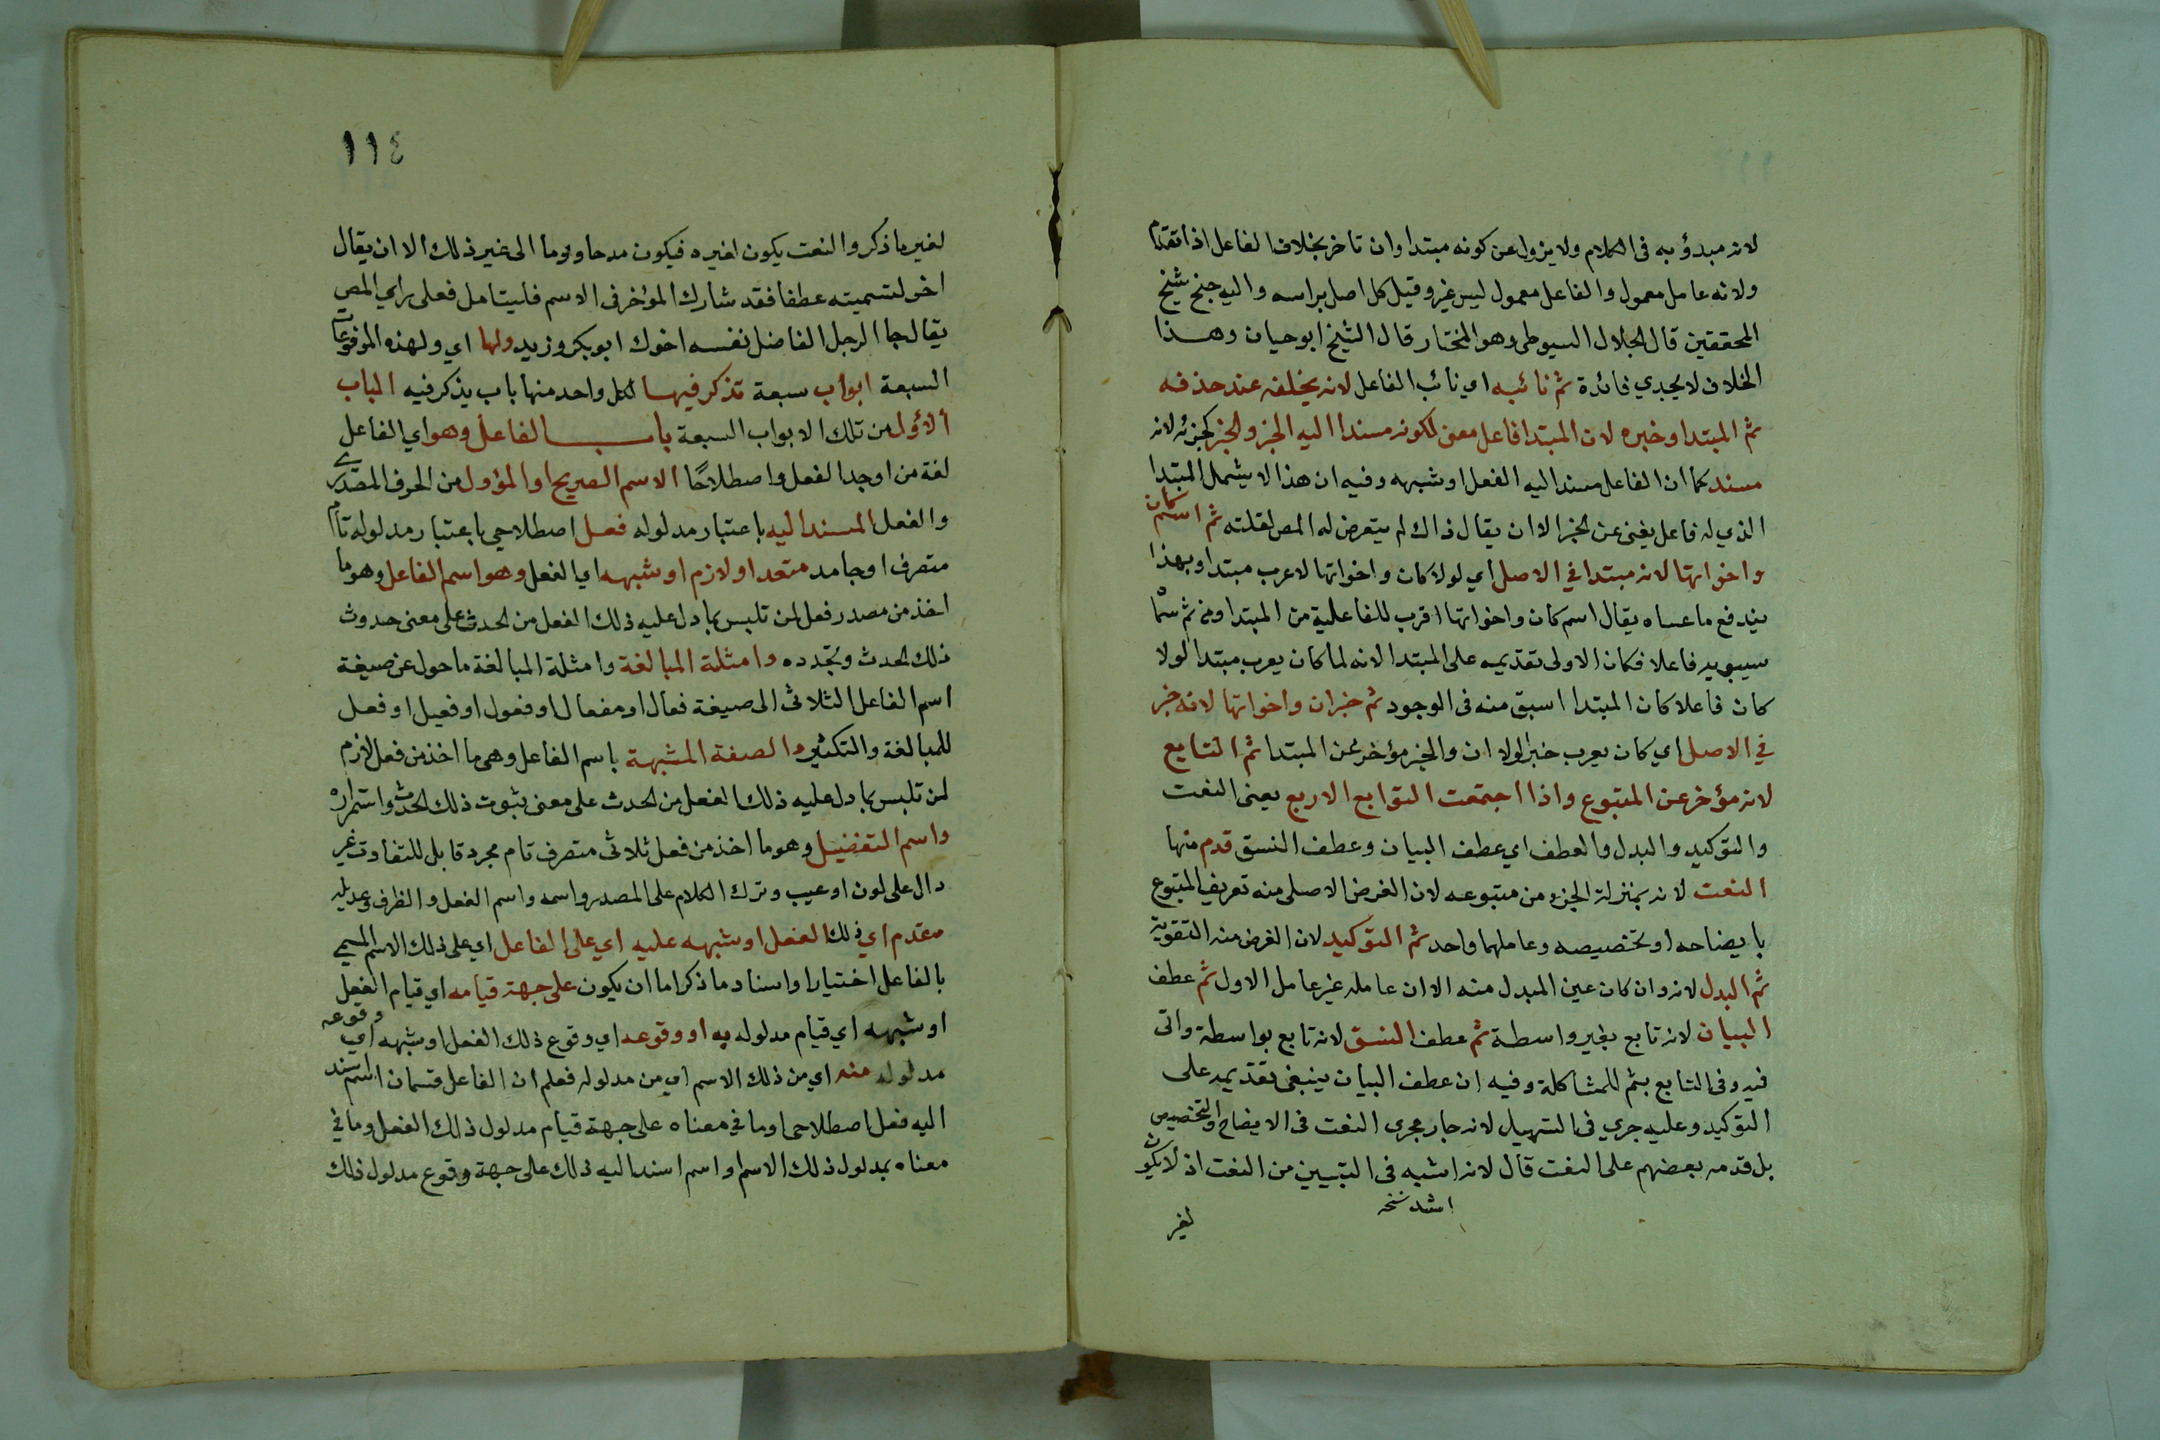 لانه مبدؤ به فى الكلام ولا يزول عن كونه مبتدا وان تاخر بخلاف الفاعل اذا تقدم
ولانه عامل معمول والفاعل معمول ليس غير وقيل كل اصل براسه واليه جنح شيخ
المحققين قال الجلال السيوطى وهو المختار قال الشيخ ابوحيان وهذا
الخلاف لا يجدي فائدة ثم نائبه اي نائب الفاعل لانه يخلفه عند حذفه
ثم المبتدا وخبره لان المبتدا فاعل معنى لكونه مسندا اليه الخبر والخبر كجزئه لانه
مسند كما ان الفاعل مسند اليه الفعل او شبهه وفيه ان هذا لا يشمل المبتدا
الذي له فاعل يغنى عن الخبر الا ان يقال ذاك لم يتعرض له المص لقلته ثم اسم كان
واخواتها لانه مبتدا في الاصل اي لولا كان واخواتها لاعرب مبتدا وبهذا
يندفع ما عساه يقال اسم كان واخواتها اقرب للفاعلية من المبتدا ومن ثم سماه
سيبويه فاعلا فكان الاولى تقديمه على المبتدا لانه لما كان يعرب مبتدا لولا
كان فاعلا كان المبتدا اسبق منه فى الوجود ثم خبر ان واخواتها لانه خبر
في الاصل اي كان يعرب خبرا لولا ان والخبر مؤخر عن المبتدا ثم التابع
لانه مؤخر عن المتبوع واذا اجتمعت التوابع الاربع يعنى النعت
والتوكيد والبدل والعطف اي عطف البيان وعطف النسق قدم منها
النعت لانه بمنزلة الجزء من متبوعه لان الغرض الاصلى منه تعريف المتبوع
بايضاحه او تخصيصه وعاملهما واحد ثم التوكيد لان الغرض منه التقوية
ثم البدل لانه وان كان عين المبدل منه الا ان عامله غير عامل الاول ثم عطف
البيان لانه تابع بغير واسطة ثم عطف النسق لانه تابع بواسطة واتى
فيه وفى التابع بثم للمشاكلة وفيه ان عطف البيان ينبغى تقديمه على
التوكيد وعليه جري فى التسهيل لانه جار مجرى النعت فى الايضاح والتخصيص
بل قدمه بعضهم على النعت قال لانه اشبه فى التبيين من النعت اذ لا يكون
اشد نسخه
لغير
١١٤
لغير ما ذكر والنعت يكون لغيره فيكون مدحا وذما الى غير ذلك الا ان يقال
اخر لتسميته عطفا فقد شارك المؤخر فى الاسم فليتامل فعلى راي المص
يقال جا الرجل الفاضل نفسه اخوك ابو بكر وزيد ولها اي ولهذه المرفوعات
السبعة ابواب سبعة تذكر فيها لكل واحد منها باب يذكر فيه الباب
الاول من تلك الابواب السبعة باب الفاعل وهو اي الفاعل
لغة من اوجد الفعل واصطلاحًا الاسم الصريح او المؤول من الحرف المصدري
والفعل المسند اليه باعتبار مدلوله فعل اصطلاحي باعتبار مدلوله تام
متصرف او جامد متعد او لازم او شبهه اي الفعل وهو اسم الفاعل وهو ما
اخذ من مصدر فعل لمن تلبس بما دل عليه ذلك الفعل من الحدث على معنى حدوث
ذلك الحدث وتجدده وامثلة المبالغة وامثلة المبالغة ما حول عن صيغة
اسم الفاعل الثلاثى الى صيغة فعال او مفعال او فعول او فعيل او فعل
للمبالغة والتكثير والصفة المشبهة باسم الفاعل وهى ما اخذ من فعل لازم
لمن تلبس بما دل عليه ذلك الفعل من الحدث على معنى ثبوت ذلك الحدث واستمراره
واسم التفضيل وهو ما اخذ من فعل ثلاثى متصرف تام مجرد قابل للتفاوت غير
دال على لون او عيب وترك الكلام على المصدر واسمه واسم الفعل والظرف وعديله
مقدم اي ذلك الفعل او شبهه عليه اي على الفاعل اي على ذلك الاسم المسمى
بالفاعل اختيارا واسناد ما ذكر اما ان يكون على جهة قيامه اي قيام الفعل
او شبهه اي قيام مدلوله به او وقوعه اي وقوع ذلك الفعل او شبهه اي وقوعه
مدلوله منه اي من ذلك الاسم اي من مدلوله فعلم ان الفاعل قسمان اسم يسند
اليه فعل اصطلاحى او ما في معناه على جهة قيام مدلول ذلك الفعل وما في
معناه بمدلول ذلك الاسم او اسم اسند اليه ذلك على جهة وقوع مدلول ذلك